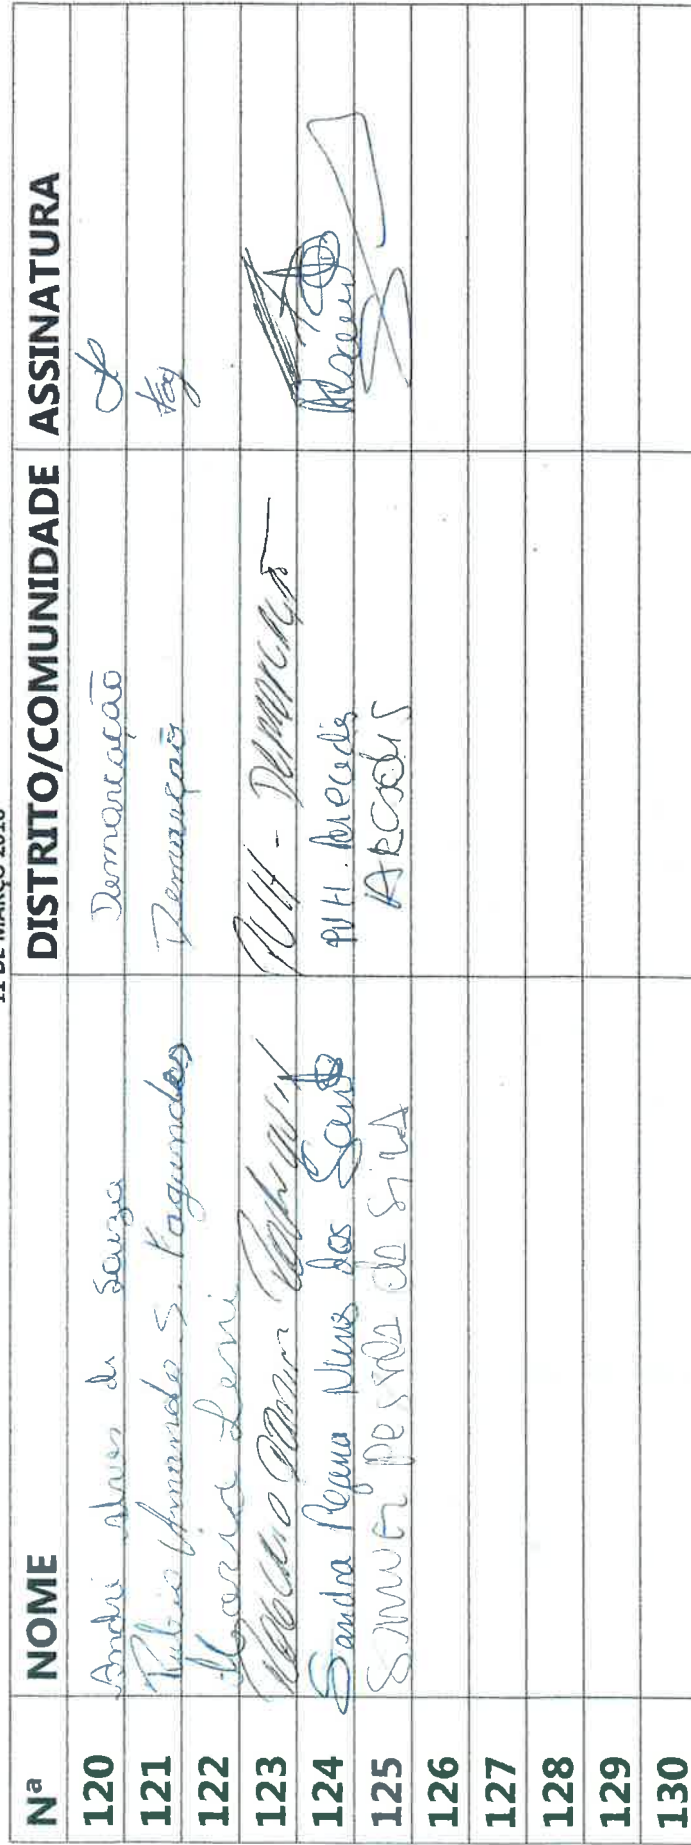 11 DE MARÇO 2016
Nª NOME DISTRITO/COMUNIDADE ASSINATURA
120 André Alves de Souza Demarcação
121 Fernandes S. Fagundes Demarcação
122 Maria Leni
123 PVH - Demarcação
124 Sandra Regina Nunes dos Santos PVH.
125 Samuel Pessoa da Silva Arcadis
126
127
128
129
130